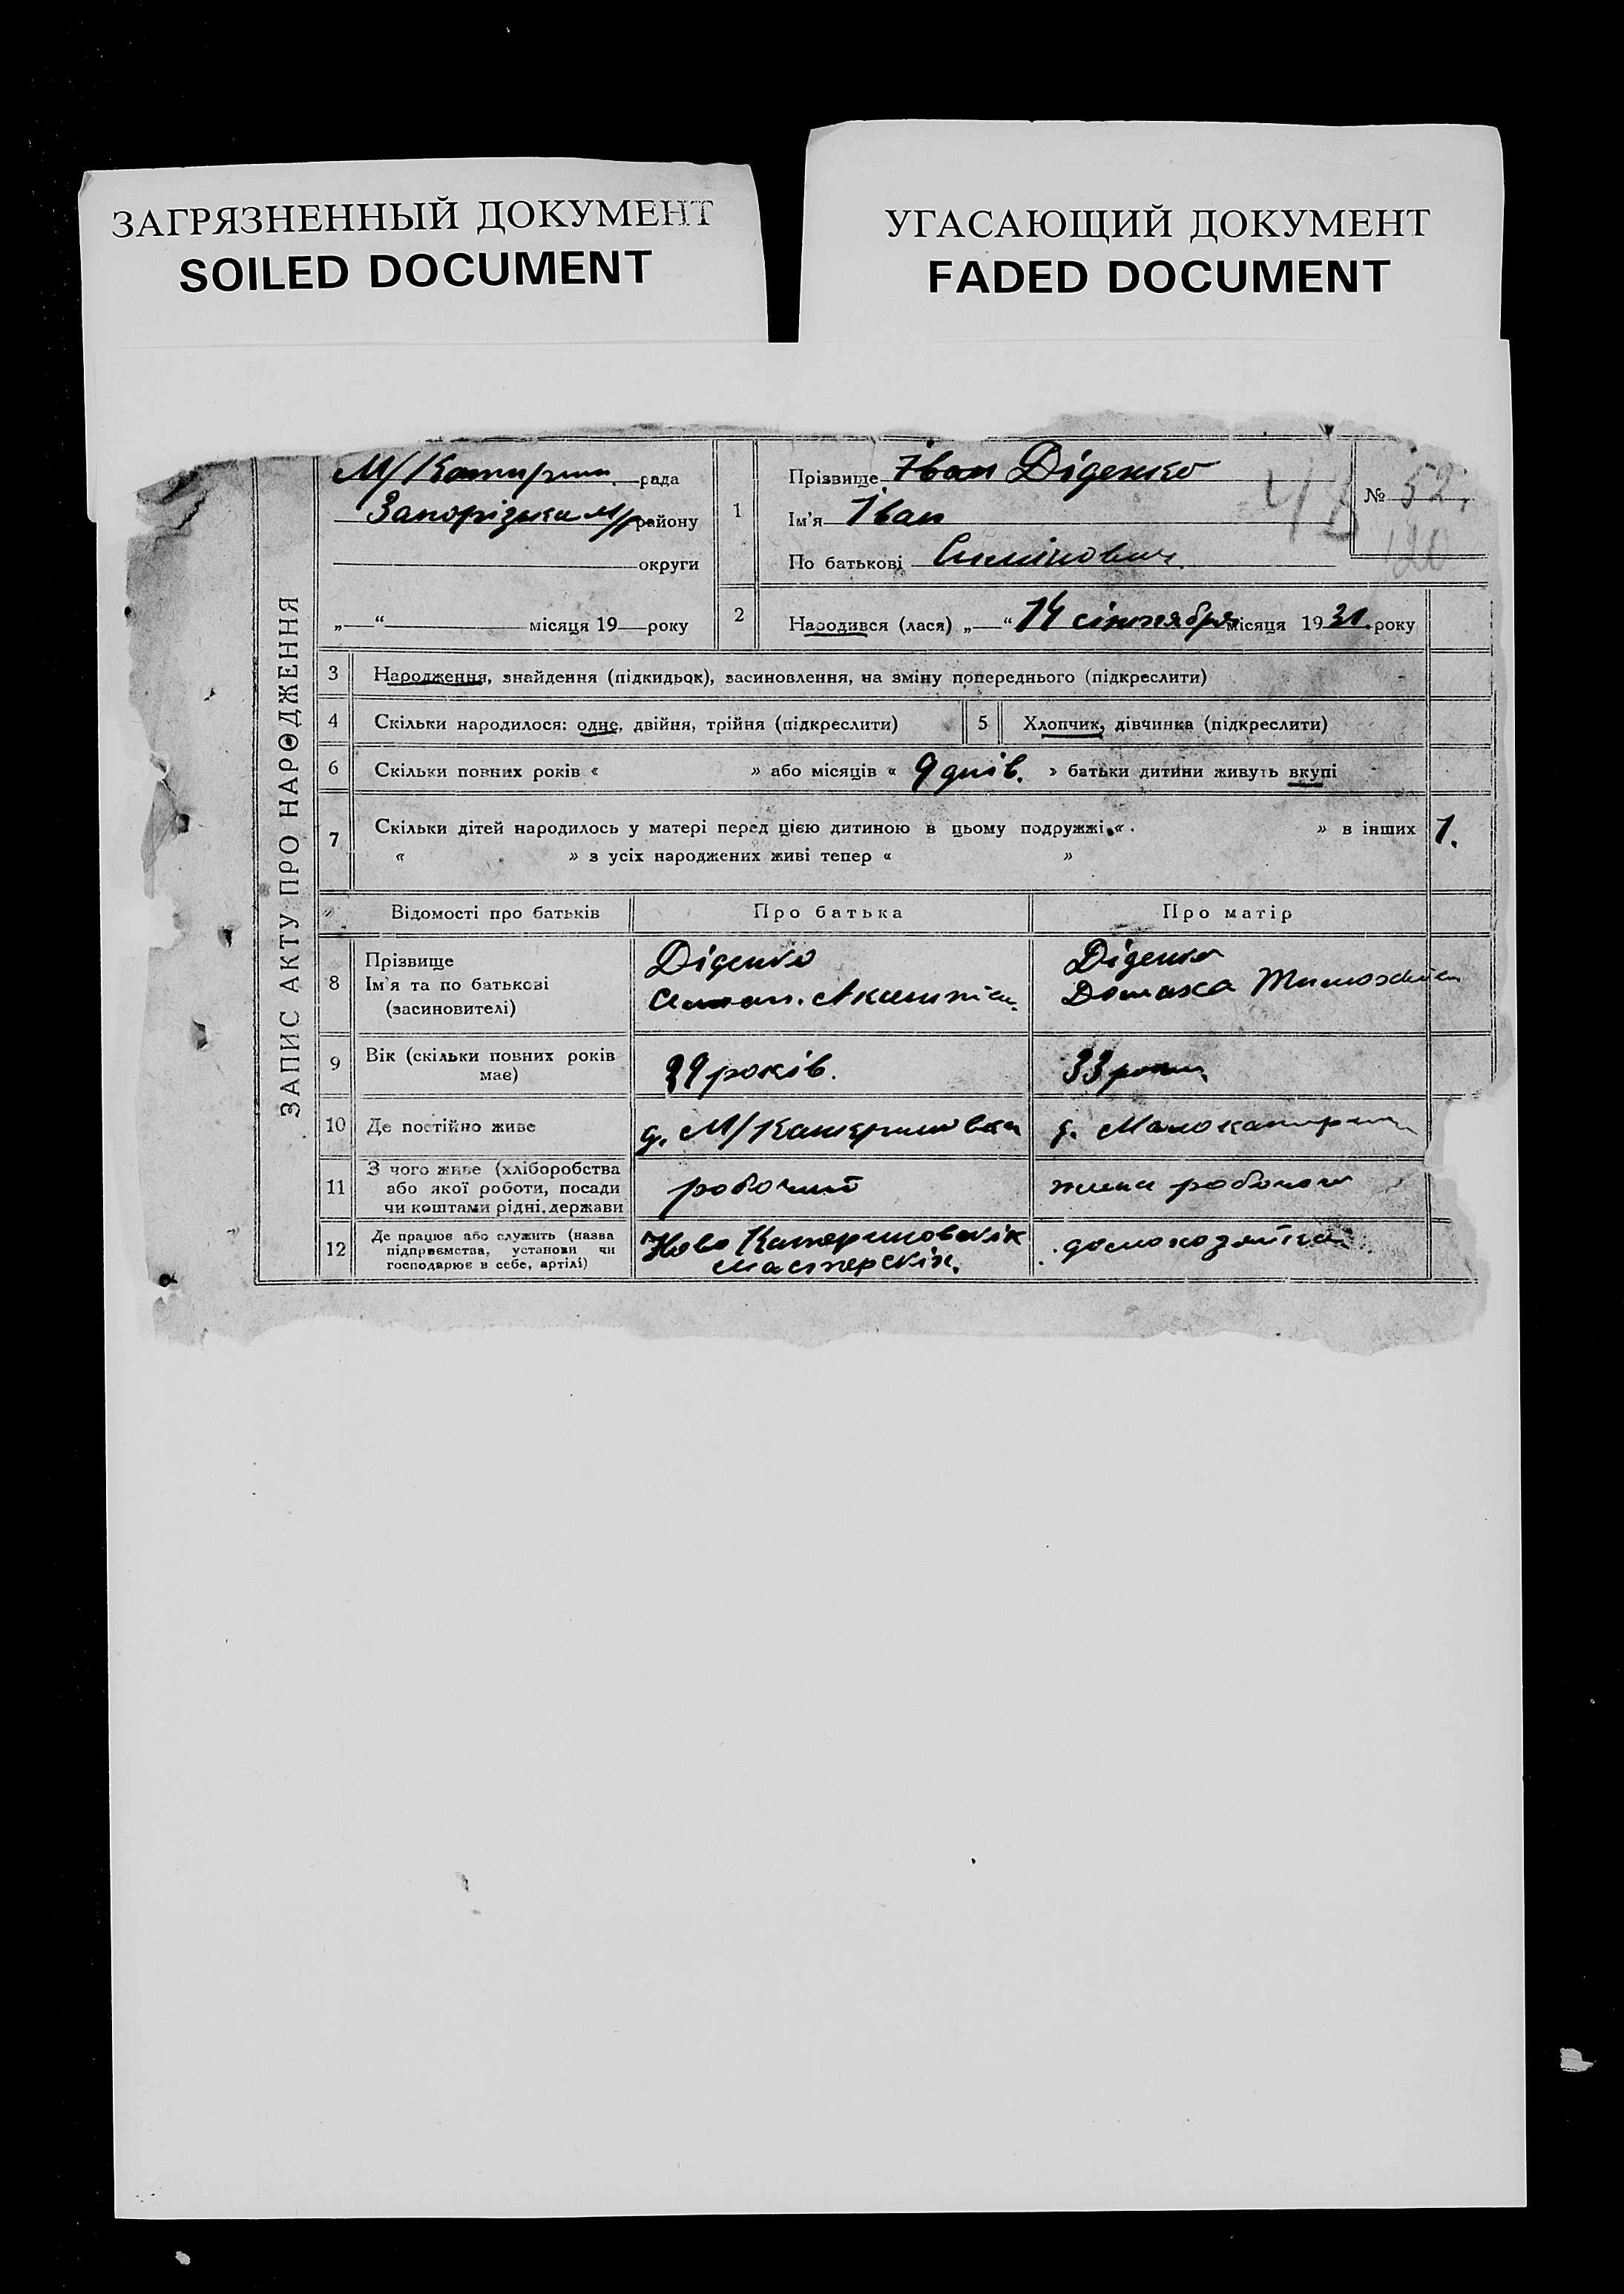 ЗАГРЯЗНЕННЫЙ ДОКУМЕНТ
SOILED DOCUMENT
УГАСАЮЩИЙ ДОКУМЕНТ
FADED DOCUMENT
ЗАПИС АКТУ ПРО НАРОДЖЕННЯ
рада
району
округи
„ “ місяця 19 року
1
Прізвище Іван Діденко
Ім'я Іван
По батькові
№ 52
2
Народився (лася) „ “ 14 місяця 1931 року
3 Народження, знайдення (підкидьок), засиновлення, на зміну попереднього (підкреслити)
4 Скільки народилося: одне, двійня, трійня (підкреслити)
5 Хлопчик, дівчинка (підкреслити)
6 Скільки повних років « » або місяців « 9 днів. » батьки дитини живуть вкупі
7 Скільки дітей народилось у матері перед цією дитиною в цьому подружжі « » в інших 1.
« » з усіх народжених живі тепер « »
Відомості про батьків Про батька Про матір
8 Прізвище
Ім'я та по батькові
(засиновителі)
Діденко
Діденко
Домаха
9 Вік (скільки повних років
має)
років.
33 роки
10 Де постійно живе
с. М/Катериновка
11 З чого живе (хліборобства
або якої роботи, посади
чи коштами рідні, держави
робочий
жена робочого
12 Де працює або служить (назва
підприємства, установи чи
господарює в себе, артілі)
Ново
домохозяйка